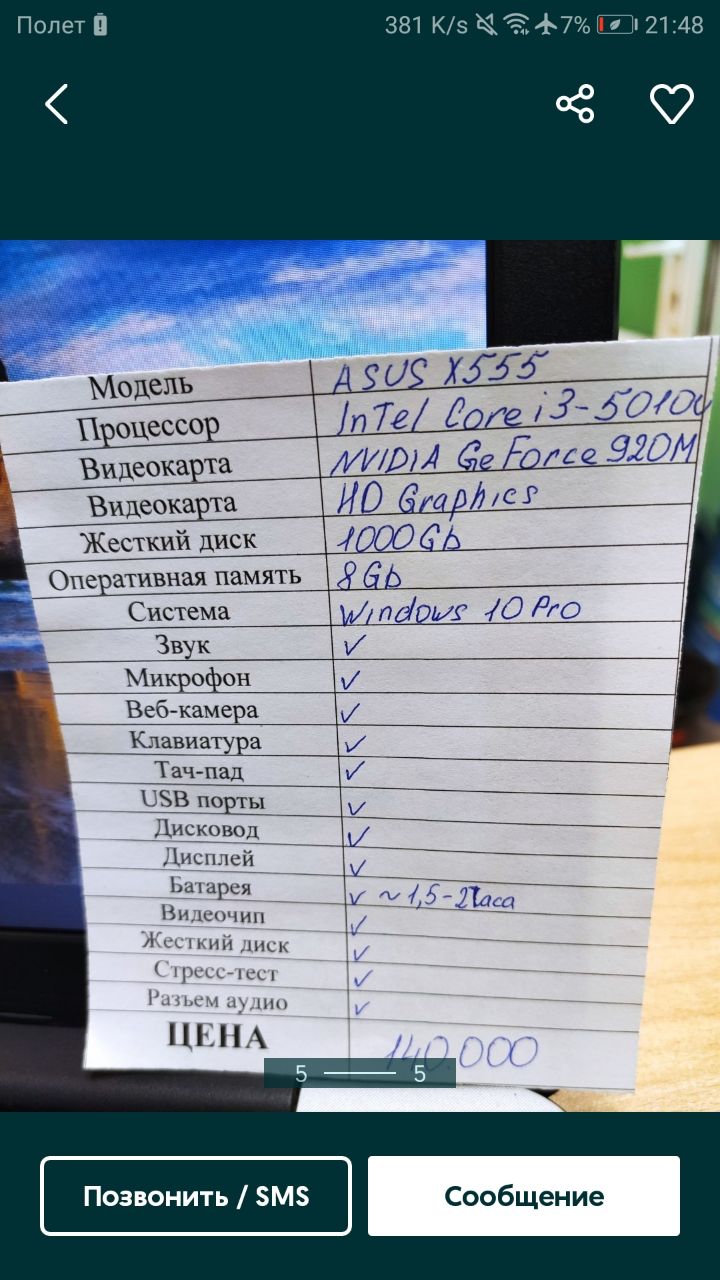 Полет
381 K/s 7% 21:48
Модель ASUS X555
Процессор InTel Core i3-5010u
Видеокарта NVIDIA GeForce 920M
Видеокарта HD Graphics
Жесткий диск 1000Gb
Оперативная память 8Gb
Система Windows 10 Pro
Звук ✓
Микрофон ✓
Веб-камера ✓
Клавиатура ✓
Тач-пад ✓
USB порты ✓
Дисковод ✓
Дисплей ✓
Батарея ✓ ~1,5-2часа
Видеочип ✓
Жесткий диск ✓
Стресс-тест ✓
Разъем аудио ✓
ЦЕНА 140.000
5 5
Позвонить / SMS
Сообщение